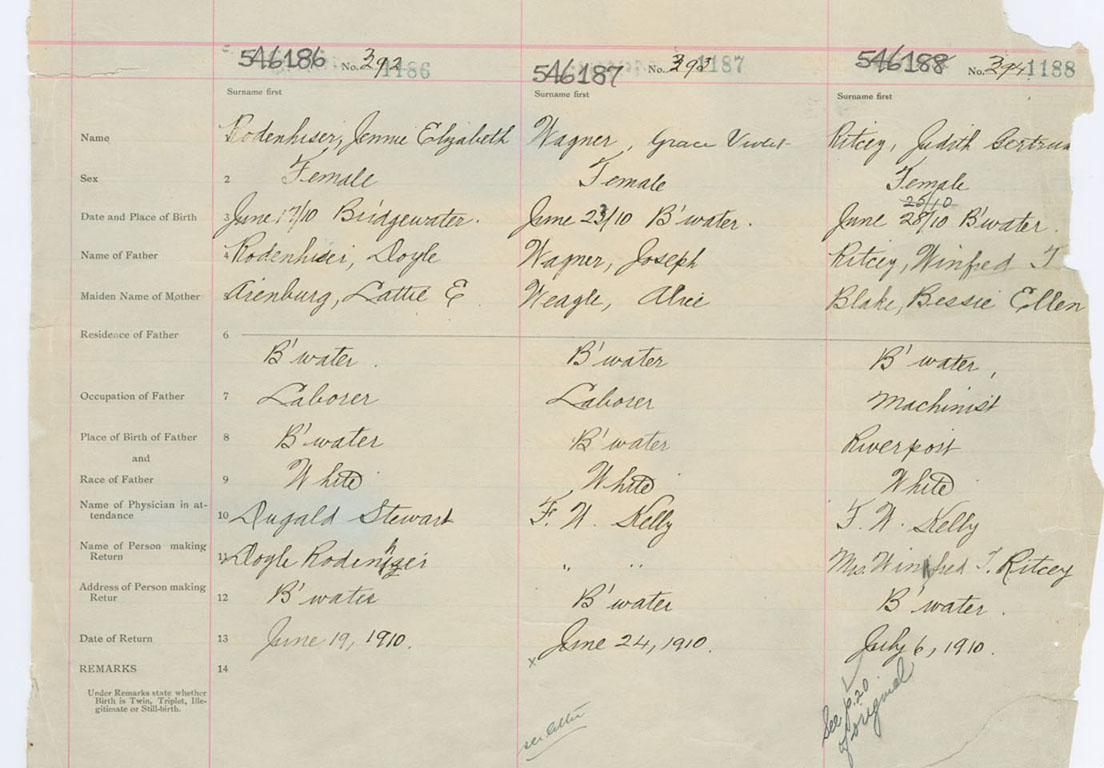 546186 No. 392 1186 546187 No. 393 1187 546188 No. 394 1188
Surname first Surname first Surname first
Name Rodenhiser, Jennie Elizabeth Wagner, Grace Violet Ritcey, Judith Gertrud
Sex 2 Female Female Female
25/10
Date and Place of Birth 3 June 17/10 Bridgewater. June 23/10 B'water. June 28/10 B'water.
Name of Father 4 Rodenhiser, Doyle Wagner, Joseph Ritcey, Winfred T
Maiden Name of Mother Arenburg, Lottie E Weagle, Alice Blake, Bessie Ellen
Residence of Father 6
B'water. B'water B'water,
Occupation of Father 7 Laborer Laborer Machinist
Place of Birth of Father 8 B'water B'water Riverport
and
Race of Father 9 White White White
Name of Physician in at-
tendance 10 Dugald Stewart F. W. Kelly F. W. Kelly
Name of Person making
Return 11 Doyle Rodenhiser " " Mrs. Winfred T. Ritcey
Address of Person making
Retur 12 B'water B'water B'water.
Date of Return 13 June 19, 1910. x June 24, 1910. July 6, 1910.
REMARKS 14
Under Remarks state whether
Birth is Twin, Triplet, Ille-
gitimate or Still-birth.
See p. 20
of original